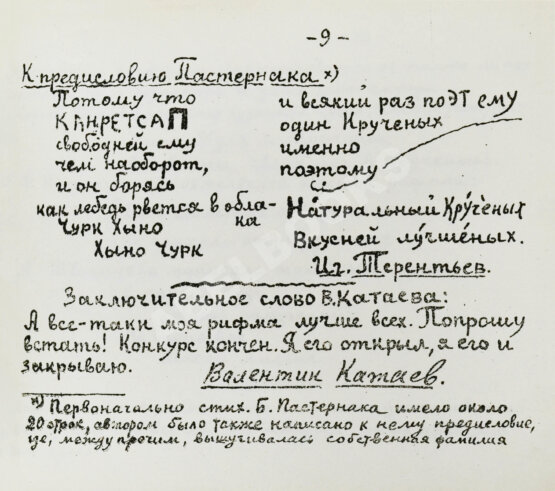 -9-
К предисловию Пастернака х)
Потому что
КАНРЕТСАП
свободней ему
чем наоборот,
и он борясь
как лебедь рвется в обла-
ка
Чурк Хыно
Хыно Чурк
и всякий раз поэТ ему
один Крученых
именно
поэтому
Натуральный Кру́ченых
Вкусней лу́чшёных.
Иг. Терентьев.
Заключительное слово В.Катаева:
А все-таки моя рифма лучше всех. Попрошу
встать! Конкурс кончен. Я его открыл, я его и
закрываю.
Валентин Катаев.
х) Первоначально стих. Б. Пастернака имело около
20 строк, автором было также написано к нему предисловие,
где, между прочим, вышучивалась собственная фамилия